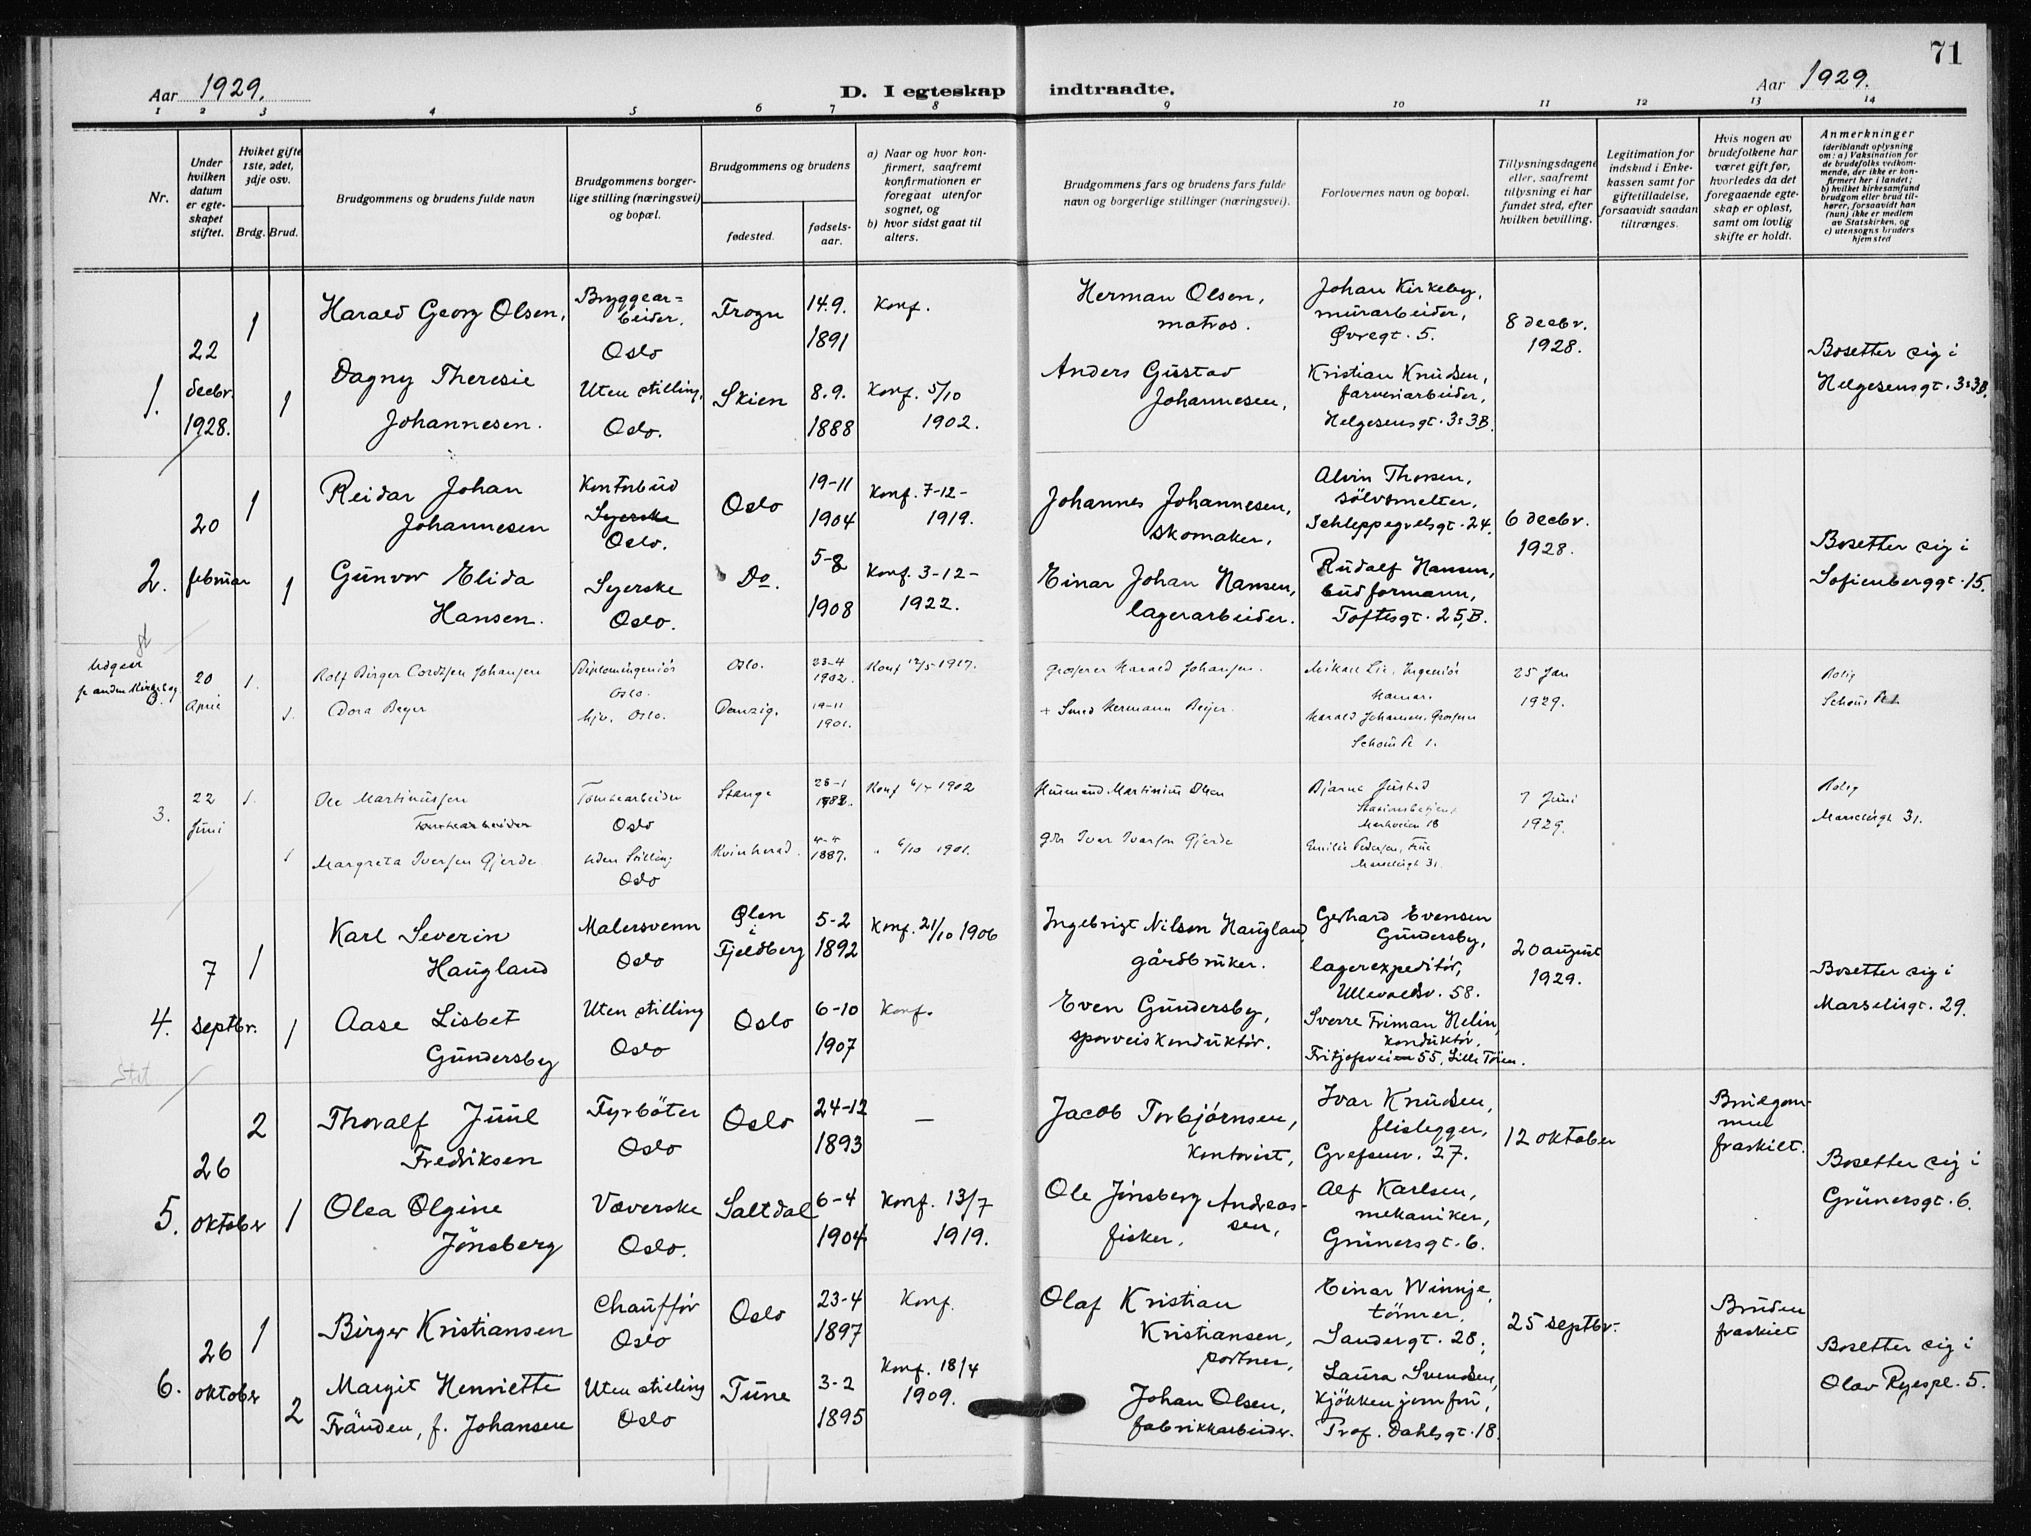 71
Aar 1929.
D. I egteskap indtraadte.
Aar 1929.
1 2 3 4 5 6 7 8 9 10 11 12 13 14
Nr.
Under hvilken datum er egteskapet stiftet.
Hviket gifte 1ste, 2det, 3dje osv.
Brdg. Brud.
Brudgommens og brudens fulde navn
Brudgommens borgerlige stilling (næringsvei) og bopæl.
Brudgommens og brudens
fødested.
fødselsaar.
a) Naar og hvor konfirmert, saafremt konfirmationen er foregaat utenfor sognet, og
b) hvor sidst gaat til alters.
Brudgommens fars og brudens fars fulde navn og borgerlige stillinger (næringsvei).
Forlovernes navn og bopæl.
Tillysningsdagene eller, saafremt tillysning ei har fundet sted, efter hvilken bevilling.
Legitimation for indskud i Enkekassen samt for giftetilladelse, forsaavidt saadan tiltrænges.
Hvis nogen av brudefolkene har været gift før, hvorledes da det foregaaende egteskap er opløst, samt om lovlig skifte er holdt.
Anmerkninger
(deriblandt oplysning om: a) Vaksination for de brudefolks vedkommende, der ikke er konfirmert her i landet; b) hvilket kirkesamfund brudgom eller brud tilhører, forsaavidt han (hun) ikke er medlem av Statskirken, og c) utensogns bruders hjemsted
1.
22 decbr. 1928.
1
Harald Georg Olsen,
Bryggearbeider.
Oslo
Frogn
14.9. 1891
Konf.
Herman Olsen,
matros.
Johan Kirkeby,
murarbeider,
Øvregt. 5.
8 decbr. 1928.
1
Dagny Theresie
Johannesen.
Uten stilling,
Oslo.
Skien
8.9. 1888
Konf. 5/10 1902.
Anders Gustav
Johannesen,
Kristian Knudsen,
farveriarbeider,
Helgesensgt. 3:3B.
Bosetter sig i
Helgesensgt. 3:3B.
2.
20 februar
1
Reidar Johan
Johannesen
Kontorbud
Syerske
Oslo.
Oslo
19-11 1904
Konf. 7-12-1919.
Johannes Johannesen,
skomaker,
Alvin Thorsen,
sölvsmelter,
Schleppegrelsgt. 24.
6 decbr. 1928.
1
Gunvor Elida
Hansen.
Syerske
Oslo.
Do.
5-8 1908
Konf. 3-12-1922.
Einar Johan Hansen,
lagerarbeider.
Rudolf Hansen,
budformann,
Toftesgt. 25,B.
Bosetter sig i
Sofienberggt. 15.
20 April
1.
Rolf Birger Cordtsen Johansen
Diplomingeniör
Oslo.
Oslo.
23-4 1902.
Grosserer Harald Johansen.
Mikael Lie, Ingeniör
Hamar.
25 Jan 1929.
1.
Dora Beyer
hjv. Oslo.
Danzig.
19-11
+ Smed Hermann Beyer.
Harald Johansen, Grosserer
Schous Pl 1.
Bolig
3.
22 Juni
1.
Ole Martinussen
Tomtearbeider
Tomtearbeider
Oslo
Stange
Husmand Martinius Olsen
Bjarne Justad
Stationsbetjent
Markveien 18
7 Juni 1929.
1
Margreta Iversen Gjerde.
uden Stilling
Oslo
Kvinherad.
4-4 1887.
6/10 1901.
Gbr Iver Iversen Gjerde
Emilie Pedersen, Frue
Marselisgt 31.
Bolig
Marselisgt 31.
4.
7 septbr.
1
Karl Severin
Haugland
Malersvenn
Oslo
Ølen i Fjeldberg
5-2 1892
Konf. 21/10 1906
Ingebrigt Nilson Haugland,
gårdbruker.
Gerhard Evensen
Gundersby,
lagerexpeditör,
Ullevoldsv. 58.
20 august 1929.
1
Aase Lisbet
Gundersby
Uten stilling
Oslo
Oslo
6-10 1907
Konf.
Even Gundersby,
sporveiskonduktør.
Sverre Friman Helin,
konduktør,
Fritjofsveien 55, Lille Tøien.
Bosetter sig i
Marselisgt. 29.
5.
26 oktober
2
Thoralf Juul
Fredriksen
Fyrböter
Oslo
Oslo
24-12 1893
—
Jacob Torbjørnsen,
kontorist,
Ivar Knudsen,
flislegger,
Grefsenv. 27.
12 oktober
Brudgommen
fraskilt.
1
Olea Olgine
Jönsberg
Væverske
Oslo.
Saltdal
6-4 1904
Konf. 13/7 1919.
Ole Jönsberg Andreassen,
fisker.
Alf Karlsen,
mekaniker,
Grünersgt. 6.
Bosetter sig i
Grünersgt. 6.
6.
26 oktober
1
Birger Kristiansen
Chauffør
Oslo
Oslo
23-4 1897
Konf.
Olaf Kristian
Kristiansen,
portner,
Einar Winnje,
tömrer,
Sandergt. 28;
25 septbr.
Bruden
fraskilt
2
Margit Henriette
Fränden, f. Johansen
Uten stilling
Oslo
Tune
3-2 1895
Konf. 18/4 1909.
Johan Olsen,
fabrikkarbeider.
Laura Svendsen,
kjökkenjomfru,
Prof. Dahlsgt. 18.
Bosetter sig i
Olav Ryespl. 5.